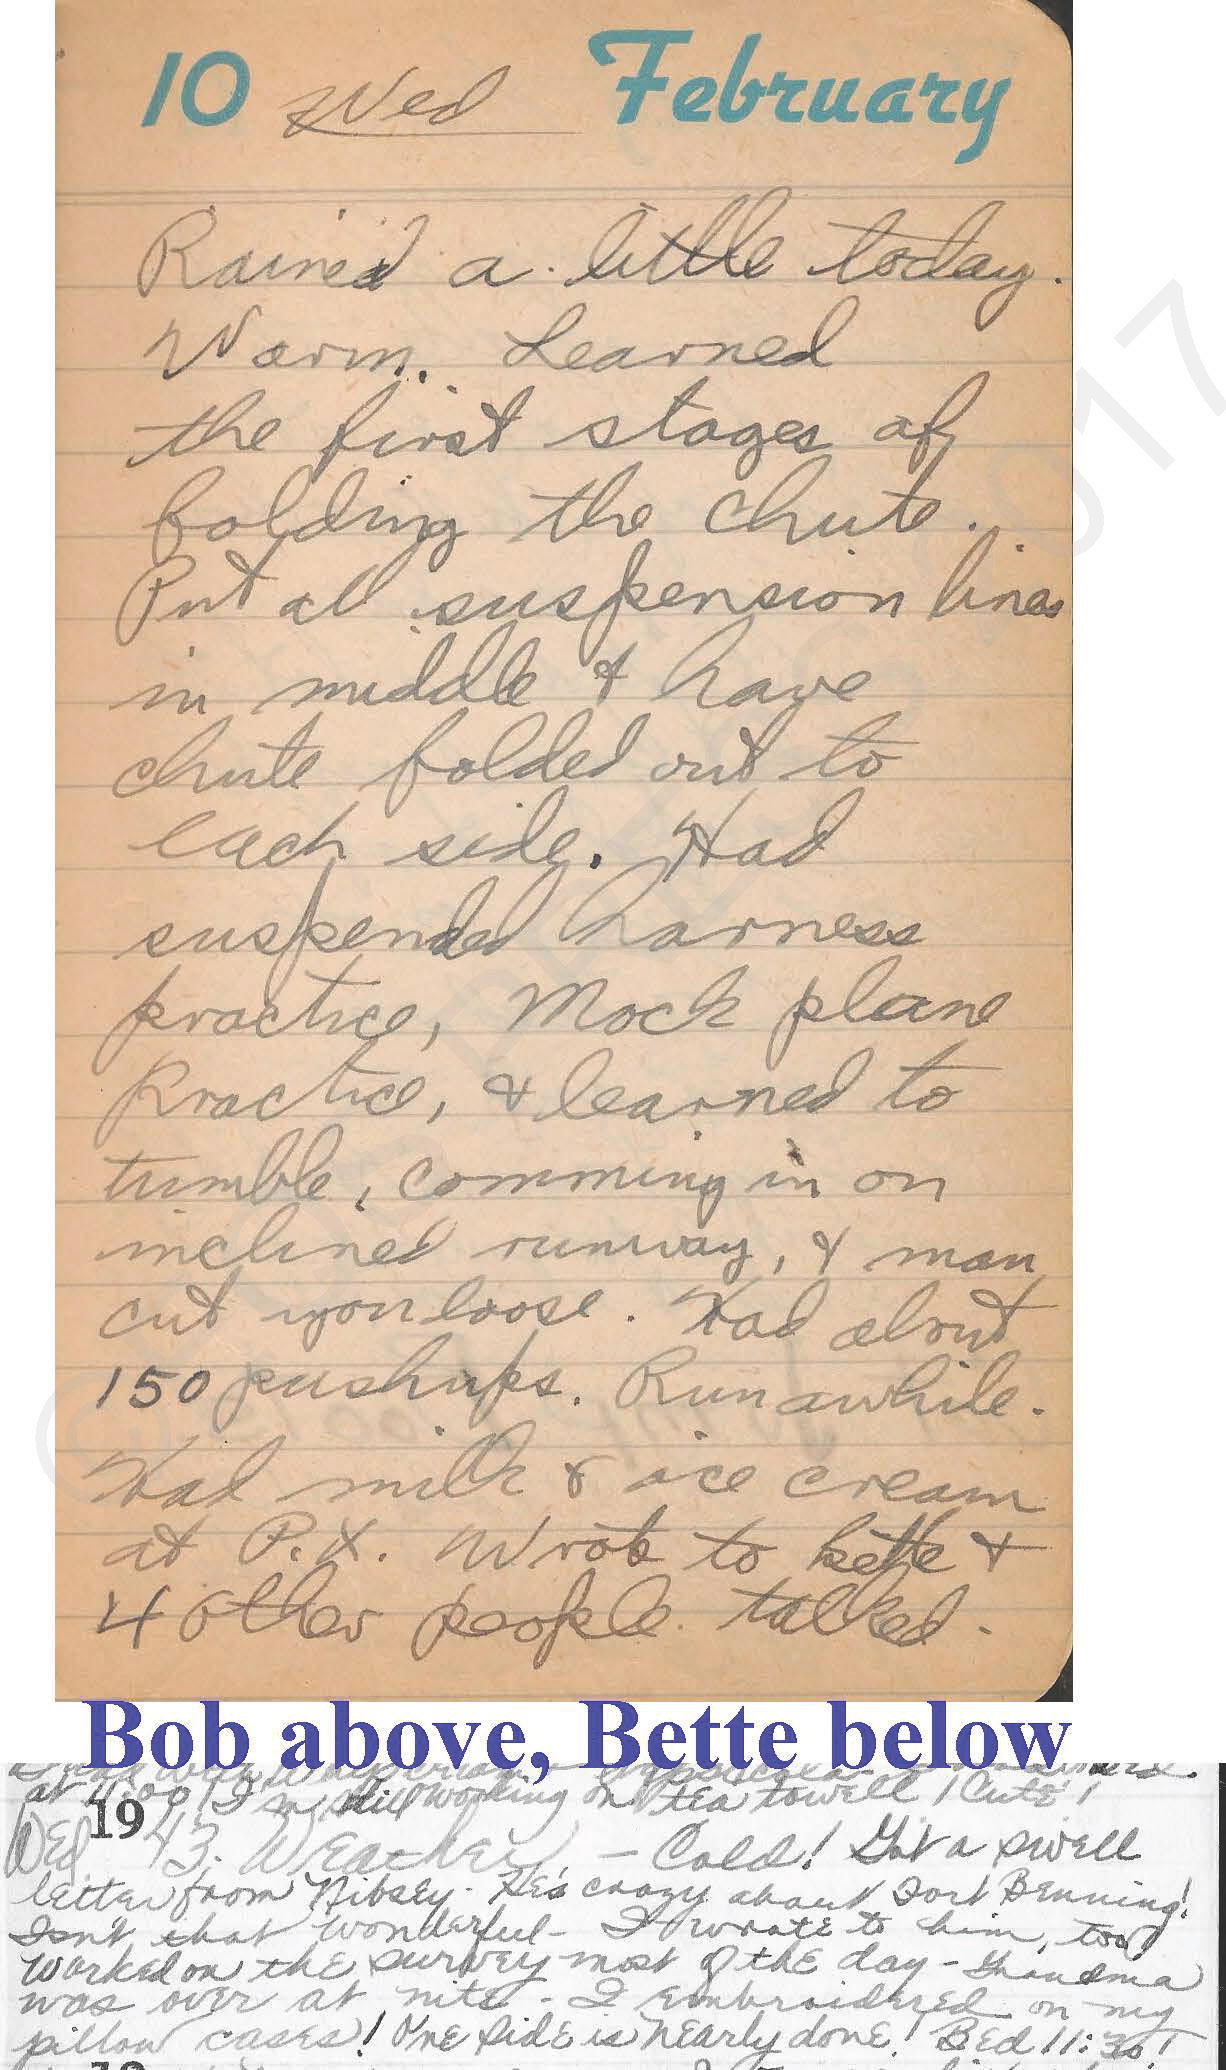 10 Wed February
Rained a little today.
Warm. Learned
the first stages of
folding the chute.
Put all suspension lines
in middle & have
chute folded out to
each side. Had
suspended harness
practice, Mock plane
Practice, & learned to
tumble, comming in on
inclined runway, & man
cut you loose. Had about
150 pushups. Run awhile.
Had milk & ice cream
at P.X. Wrote to bette &
4 other people. talked.
Bob above, Bette below
at 11:00! I'm still working on tea towell! Cute!
19
Wed 43. Weather - Cold! Got a swell
letter from Nibsey. He's crazy about Fort Benning!
Isn't that wonderful - I wrote to him, too!
Worked on the survey most of the day - Grandma
was over at nite - I embroidered on my
pillow cases! One side is nearly done! Bed 11:30!
19
2017